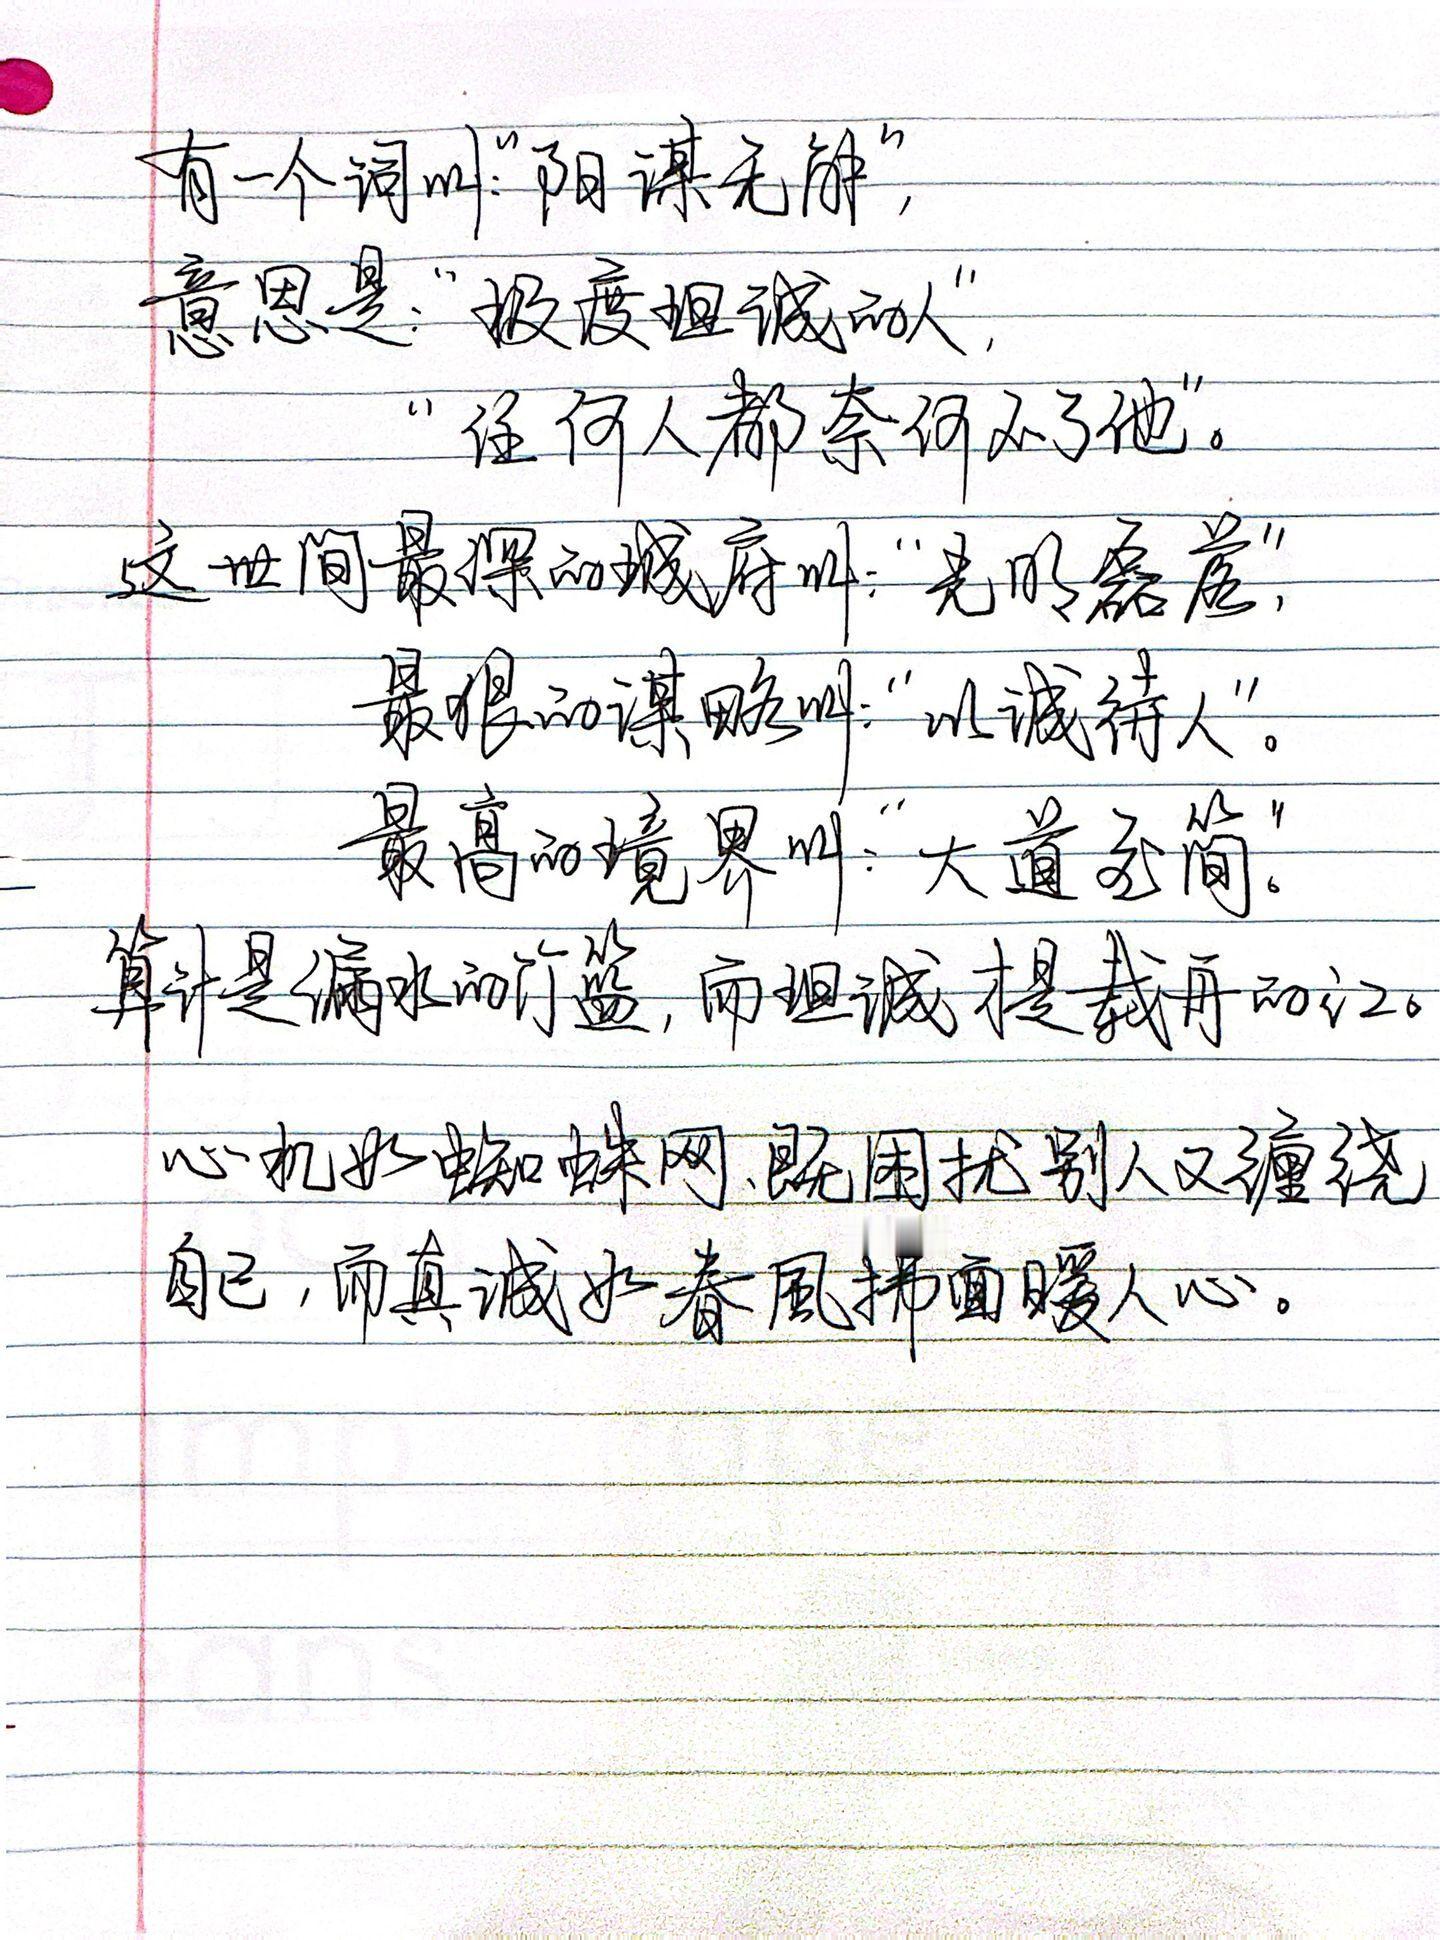 有一个词叫:“阳谋无解”,
意思是:“极度坦诚的人”,
“任何人都奈何不了他”。
这世间最深的城府叫:“光明磊落”,
最狠的谋略叫:“以诚待人”。
最高的境界叫:“大道至简”。
算计是漏水的竹篮,而坦诚才是载舟的江。
心机如蜘蛛网、既困扰别人又缠绕
自己,而真诚如春風拂面暖人心。